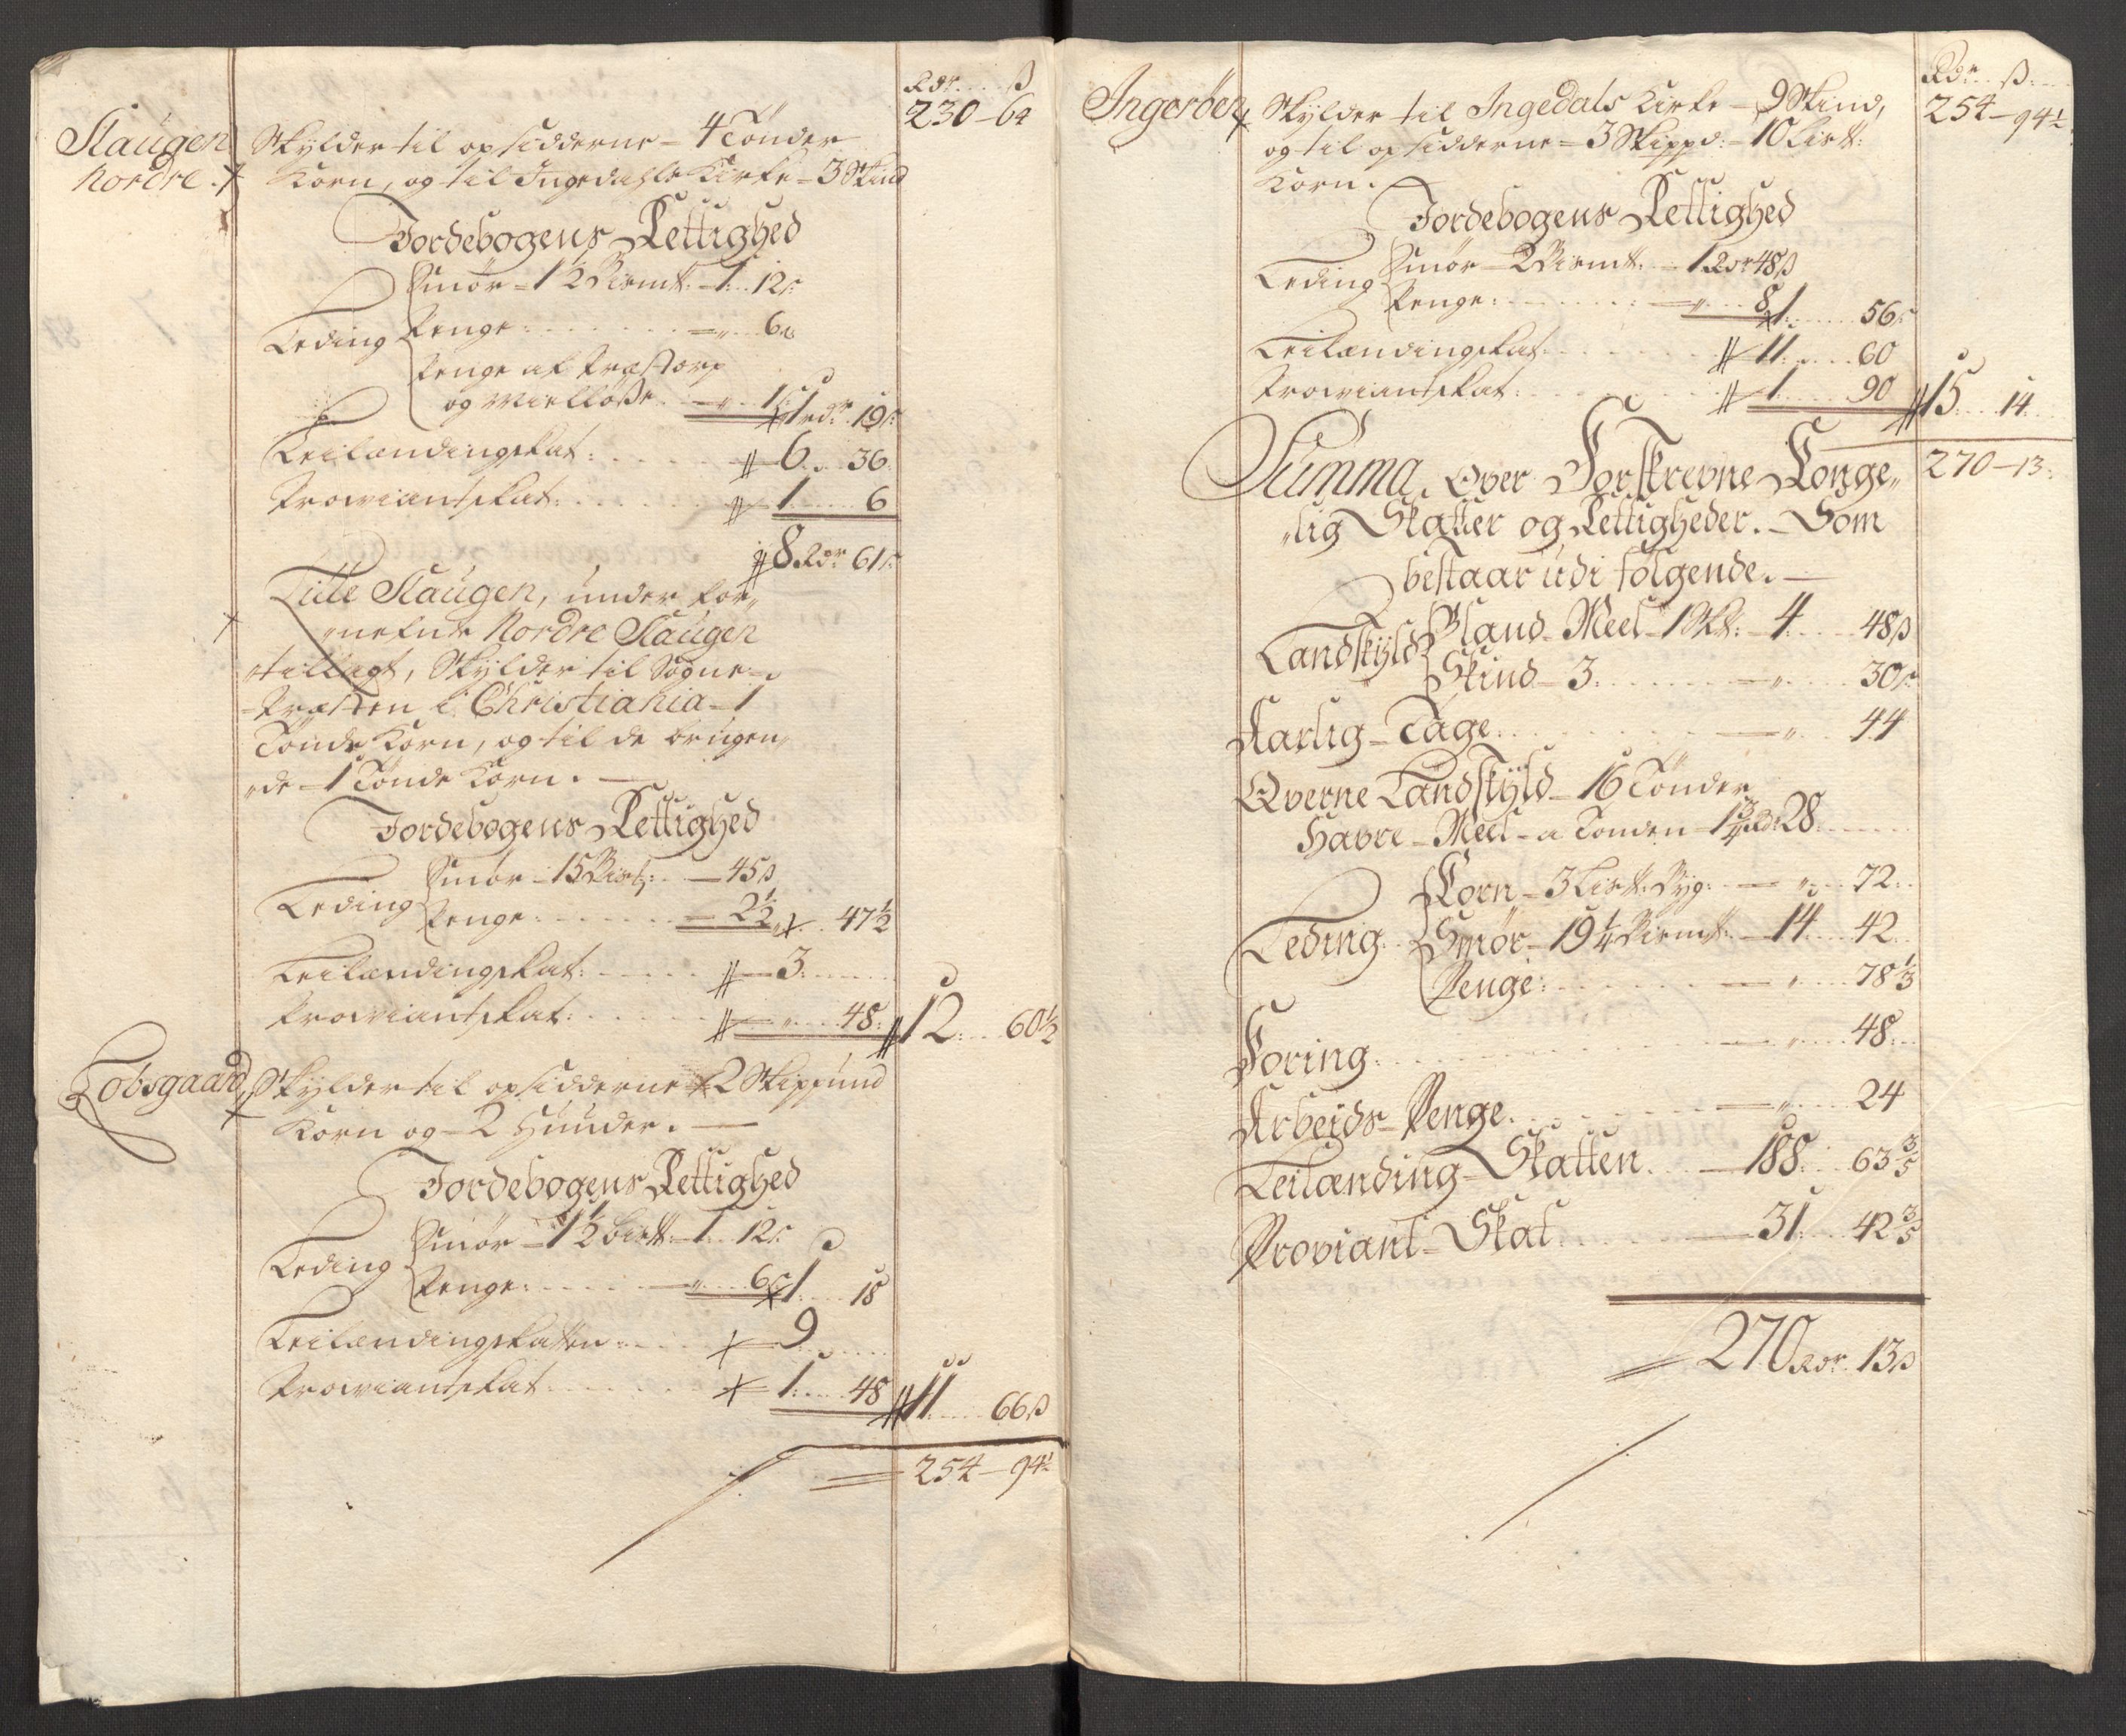 Rdr. ß
230 - 64
Slaugen
Nordre
Skylder til opsidderne - 4 Tönder
Korn, og til Ingedals Kirke - 3 Skind
Jordebogens Rettighed
Leding
Smör - 1½ Bismt: - 1: 12ß
Penge: - „ 6ß
Penge af
og - „ 1ß 1rdr 19ß
Leilændingskat: 6 .. 36
Proviantskat: 1 .. 6
8 Rdr 61ß
Lille Slaugen, under for„
„nefnde Nordre Slaugen
tillagt, Skylder til Sogne-
Præsten i Christiania - 1
Tönde Korn, og til de brugen„
„de - 1 Tönde Korn.
Jordebogens Rettighed
Leding
Smör - 15 - 45ß
Penge: - 2½ 47½
Leilændingskat: 3
Proviantskat: „ 48: 12 .. 60½
Lobsgaard
Skylder til opsidderne - 2 Skippund
Korn og - 2 Huuder.
Jordebogens Rettighed
Leding
Smör - 1½ - 1 .. 12ß
Penge: - „ 6ß 1 .. 18
Leilændingskatten: 9
Proviantskat: 1 .. 48 11 .. 66ß
254 - 94½
Rdr. ß
254 - 94½
Ingeröen
Skylder til Ingedals Kirke - 9 Skind,
og til opsidderne - 3 Skippd: - 10 Lispd:
Korn.
Jordebogens Rettighed
Leding
Smör - 2 Bismt: - 1 Rdr 48ß
Penge: - „ 8 1 .. 56ß
Leilændingskat: 11 .. 60
Proviantskat: 1 .. 90 15 .. 14
Summa Over Forskrevne Konge„
„lig Skatter og Rettigheder. Som
270 - 13
bestaar udi følgende.
Landskyld
Bland-Meel - 1 : 4 .. 48ß
Skind - 3 - „ 30ß
Aarlig-Tage - „ 44
Qverne Landskyld - 16 Tönder
Havre-Meel - a Tonden - 1¾ Rd: 28
Leding
Korn - 3 Byg: - „ 72
Smör - 19¼ Bismt: - 14 .. 42
Penge: - „ 78⅓
Foring - „ 48
Arbeids-Penge - „ 24
Leilænding-Skatten - 188 .. 63⅗
Proviant-Skat - 31 .. 42⅗
270 Rdr. 13ß